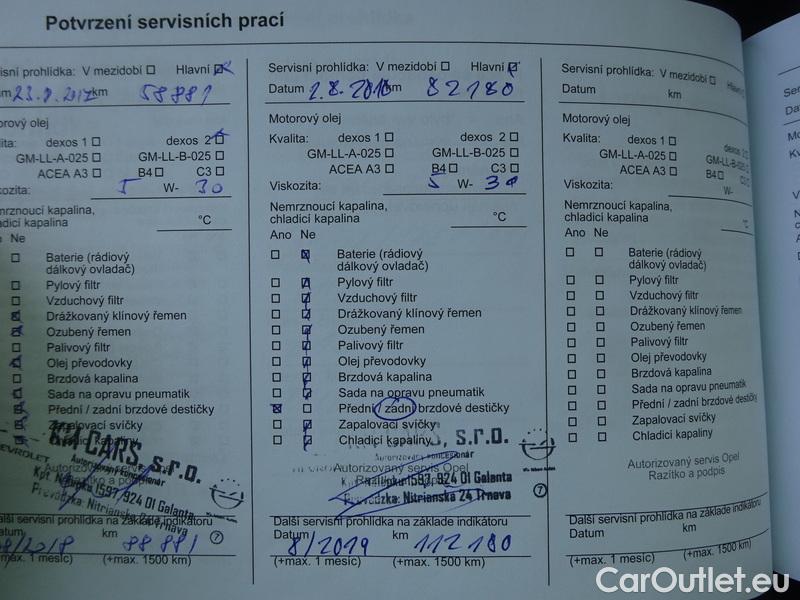 Potvrzení servisních prací
isní prohlídka: V mezidobí Hlavní
km 58881
torový olej
lita: dexos 1 dexos 2
GM-LL-A-025 GM-LL-B-025
ACEA A3 B4 C3
cozita: 5 W- 30
mrznoucí kapalina,
adicí kapalina °C
o Ne
Baterie (rádiový
dálkový ovladač)
Pylový filtr
Vzduchový filtr
Drážkovaný klínový řemen
Ozubený řemen
Palivový filtr
Olej převodovky
Brzdová kapalina
Sada na opravu pneumatik
Přední / zadní brzdové destičky
Zapalovací svíčky
Chladicí kapaliny
KM CARS, s.r.o.
Autorizovaný koncesionár
CHEVROLET
Autorizovaný servis
Razítko a podpis
Kpt. Nálepku 1597, 924 01 Galanta
Prevádzka: Nitrianska 24 Trnava
7
Další servisní prohlídka na základě indikátoru
Datum km
8/2018 88 881
(+max. 1 měsíc) (+max. 1500 km)
Servisní prohlídka: V mezidobí Hlavní
Datum 2.8. km 82180
Motorový olej
Kvalita: dexos 1 dexos 2
GM-LL-A-025 GM-LL-B-025
ACEA A3 B4 C3
Viskozita: 5 W- 30
Nemrznoucí kapalina,
chladicí kapalina °C
Ano Ne
Baterie (rádiový
dálkový ovladač)
Pylový filtr
Vzduchový filtr
Drážkovaný klínový řemen
Ozubený řemen
Palivový filtr
Olej převodovky
Brzdová kapalina
Sada na opravu pneumatik
Přední / zadní brzdové destičky
Zapalovací svíčky
Chladicí kapaliny
CARS, s.r.o.
Autorizovaný koncesionár
Autorizovaný servis Opel
1597, 924 01 Galanta
Prevádzka: Nitrianska 24 Trnava
7
Další servisní prohlídka na základě indikátoru
Datum km
8/2019 112 180
(+max. 1 měsíc) (+max. 1500 km)
Servisní prohlídka: V mezidobí Hlavní
Datum km
Motorový olej
Kvalita: dexos 1 dexos 2
GM-LL-A-025 GM-LL-B-025
ACEA A3 B4 C3
Viskozita: W-
Nemrznoucí kapalina,
chladicí kapalina °C
Ano Ne
Baterie (rádiový
dálkový ovladač)
Pylový filtr
Vzduchový filtr
Drážkovaný klínový řemen
Ozubený řemen
Palivový filtr
Olej převodovky
Brzdová kapalina
Sada na opravu pneumatik
Přední / zadní brzdové destičky
Zapalovací svíčky
Chladicí kapaliny
Autorizovaný servis Opel
Razítko a podpis
Další servisní prohlídka na základě indikátoru
Datum km
(+max. 1 měsíc) (+max. 1500 km)
CarOutlet.eu